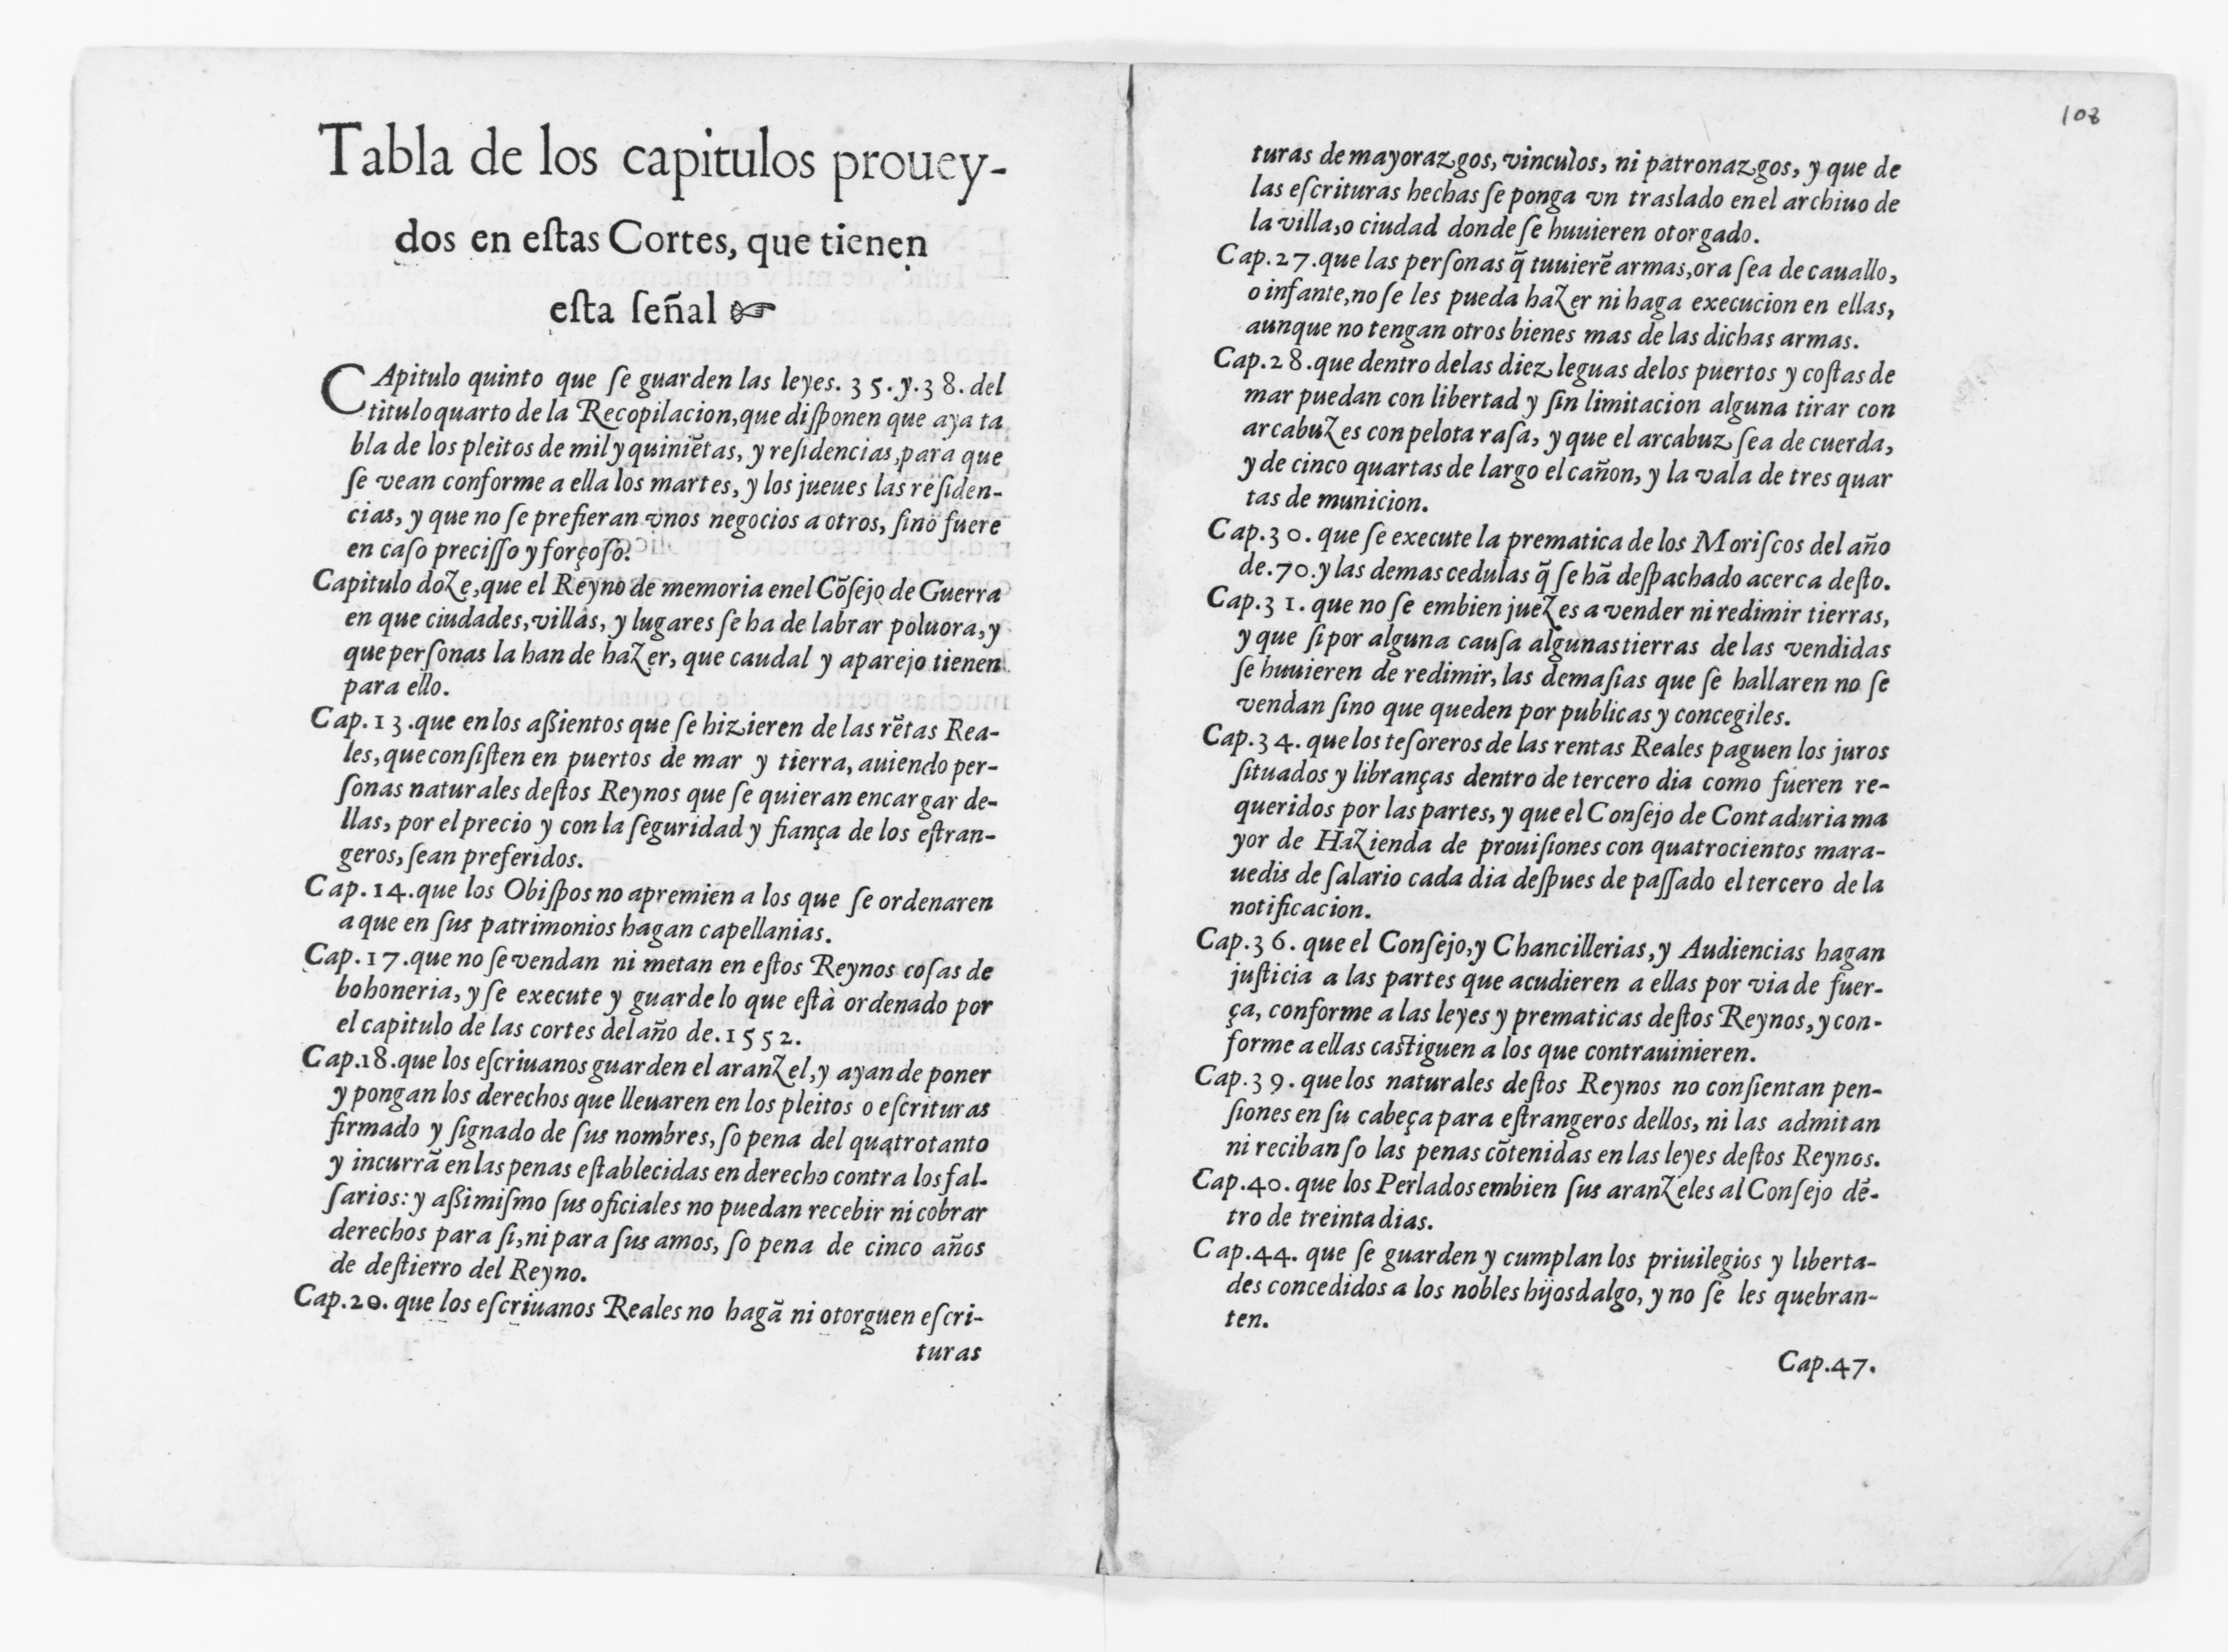 Tabla de los capitulos prouey-
dos en eſtas Cortes, que tienen
eſta ſeñal ☞
CApitulo quinto que ſe guarden las leyes. 35. y. 38. del
titulo quarto de la Recopilacion, que diſponen que aya ta
bla de los pleitos de mil y quiniẽtas, y reſidencias, para que
ſe vean conforme a ella los martes, y los jueues las reſiden-
cias, y que no ſe prefieran vnos negocios a otros, ſino fuere
en caſo preciſſo y forçoſo.
Capitulo doze, que el Reyno de memoria enel Cõſejo de Guerra
en que ciudades, villas, y lugares ſe ha de labrar poluora, y
que perſonas la han de hazer, que caudal y aparejo tienen
para ello.
Cap. 13. que en los aßientos que ſe hizieren de las rẽtas Rea-
les, que conſiſten en puertos de mar y tierra, auiendo per-
ſonas naturales deſtos Reynos que ſe quieran encargar de-
llas, por el precio y con la ſeguridad y fiança de los eſtran-
geros, ſean preferidos.
Cap. 14. que los Obiſpos no apremien a los que ſe ordenaren
a que en ſus patrimonios hagan capellanias.
Cap. 17. que no ſe vendan ni metan en eſtos Reynos coſas de
bohoneria, y ſe execute y guarde lo que eſtà ordenado por
el capitulo de las cortes del año de. 1552.
Cap. 18. que los eſcriuanos guarden el aranzel, y ayan de poner
y pongan los derechos que lleuaren en los pleitos o eſcrituras
firmado y ſignado de ſus nombres, ſo pena del quatrotanto
y incurrã en las penas eſtablecidas en derecho contra los fal-
ſarios: y aßimiſmo ſus oficiales no puedan recebir ni cobrar
derechos para ſi, ni para ſus amos, ſo pena de cinco años
de deſtierro del Reyno.
Cap. 20. que los eſcriuanos Reales no hagã ni otorguen eſcri-
turas
108
turas de mayorazgos, vinculos, ni patronazgos, y que de
las eſcrituras hechas ſe ponga vn traslado enel archiuo de
la villa, o ciudad donde ſe huuieren otorgado.
Cap. 27. que las perſonas q̃ tuuierẽ armas, ora ſea de cauallo,
o infante, no ſe les pueda hazer ni haga execucion en ellas,
aunque no tengan otros bienes mas de las dichas armas.
Cap. 28. que dentro delas diez leguas delos puertos y coſtas de
mar puedan con libertad y ſin limitacion alguna tirar con
arcabuzes con pelota raſa, y que el arcabuz ſea de cuerda,
y de cinco quartas de largo el cañon, y la vala de tres quar
tas de municion.
Cap. 30. que ſe execute la prematica de los Moriſcos del año
de. 70. y las demas cedulas q̃ ſe hã deſpachado acerca deſto.
Cap. 31. que no ſe embien juezes a vender ni redimir tierras,
y que ſi por alguna cauſa algunas tierras de las vendidas
ſe huuieren de redimir, las demaſias que ſe hallaren no ſe
vendan ſino que queden por publicas y concegiles.
Cap. 34. que los teſoreros de las rentas Reales paguen los juros
ſituados y libranças dentro de tercero dia como fueren re-
queridos por las partes, y que el Conſejo de Contaduria ma
yor de Hazienda de prouiſiones con quatrocientos mara-
uedis de ſalario cada dia deſpues de paſſado el tercero de la
notificacion.
Cap. 36. que el Conſejo, y Chancillerias, y Audiencias hagan
juſticia a las partes que acudieren a ellas por via de fuer-
ça, conforme a las leyes y prematicas deſtos Reynos, y con-
forme a ellas caſtiguen a los que contrauinieren.
Cap. 39. que los naturales deſtos Reynos no conſientan pen-
ſiones en ſu cabeça para eſtrangeros dellos, ni las admitan
ni reciban ſo las penas cõtenidas en las leyes deſtos Reynos.
Cap. 40. que los Perlados embien ſus aranzeles al Conſejo dẽ-
tro de treinta dias.
Cap. 44. que ſe guarden y cumplan los priuilegios y liberta-
des concedidos a los nobles hijosdalgo, y no ſe les quebran-
ten.
Cap. 47.